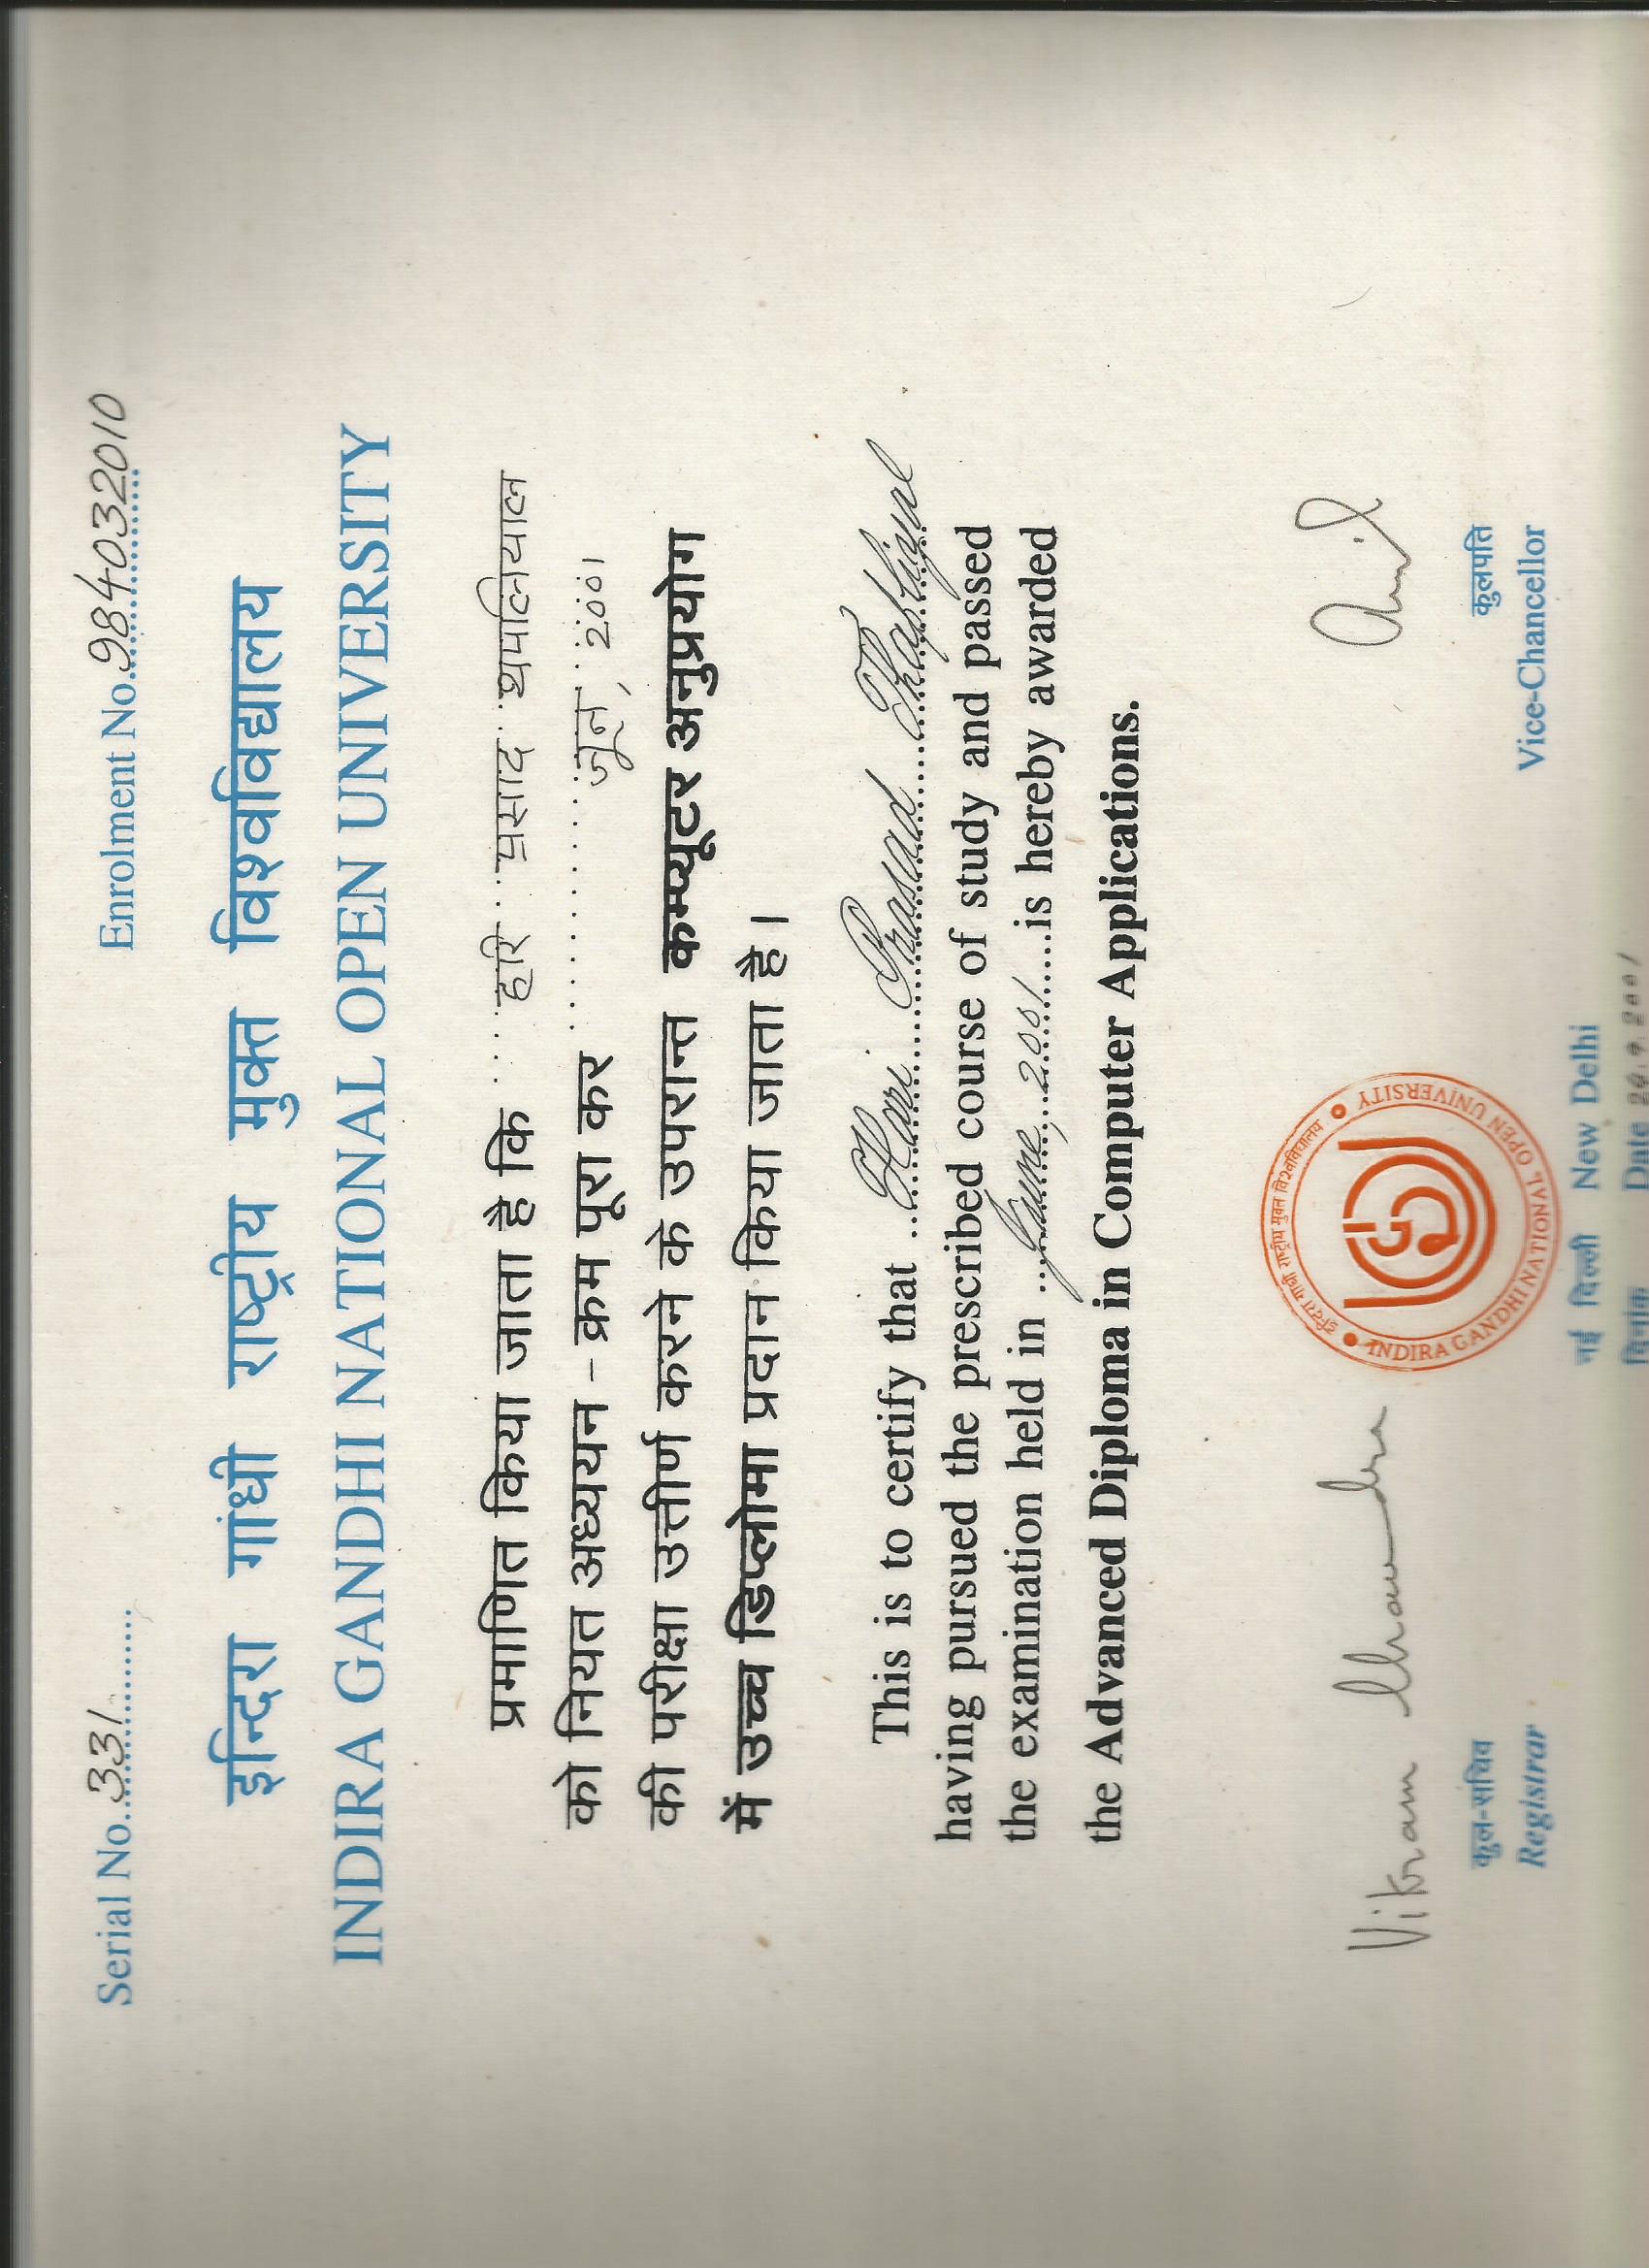 Serial No. 331
Enrolment No. 984032010
इन्दिरा गांधी राष्ट्रीय मुक्त विश्वविद्यालय
INDIRA GANDHI NATIONAL OPEN UNIVERSITY
प्रमाणित किया जाता है कि हरि प्रसाद थपलियाल
को नियत अध्ययन - क्रम पूरा कर जून, 2001
की परीक्षा उत्तीर्ण करने के उपरान्त कम्प्यूटर अनुप्रयोग
में उच्च डिप्लोमा प्रदान किया जाता है।
This is to certify that Hari Prasad Thapliyal
having pursued the prescribed course of study and passed
the examination held in June, 2001 is hereby awarded
the Advanced Diploma in Computer Applications.
इन्दिरा गांधी राष्ट्रीय मुक्त विश्वविद्यालय
INDIRA GANDHI NATIONAL OPEN UNIVERSITY
Vikram Chandra
Anil
कुल-सचिव
Registrar
कुलपति
Vice-Chancellor
नई दिल्ली New Delhi
दिनांक Date